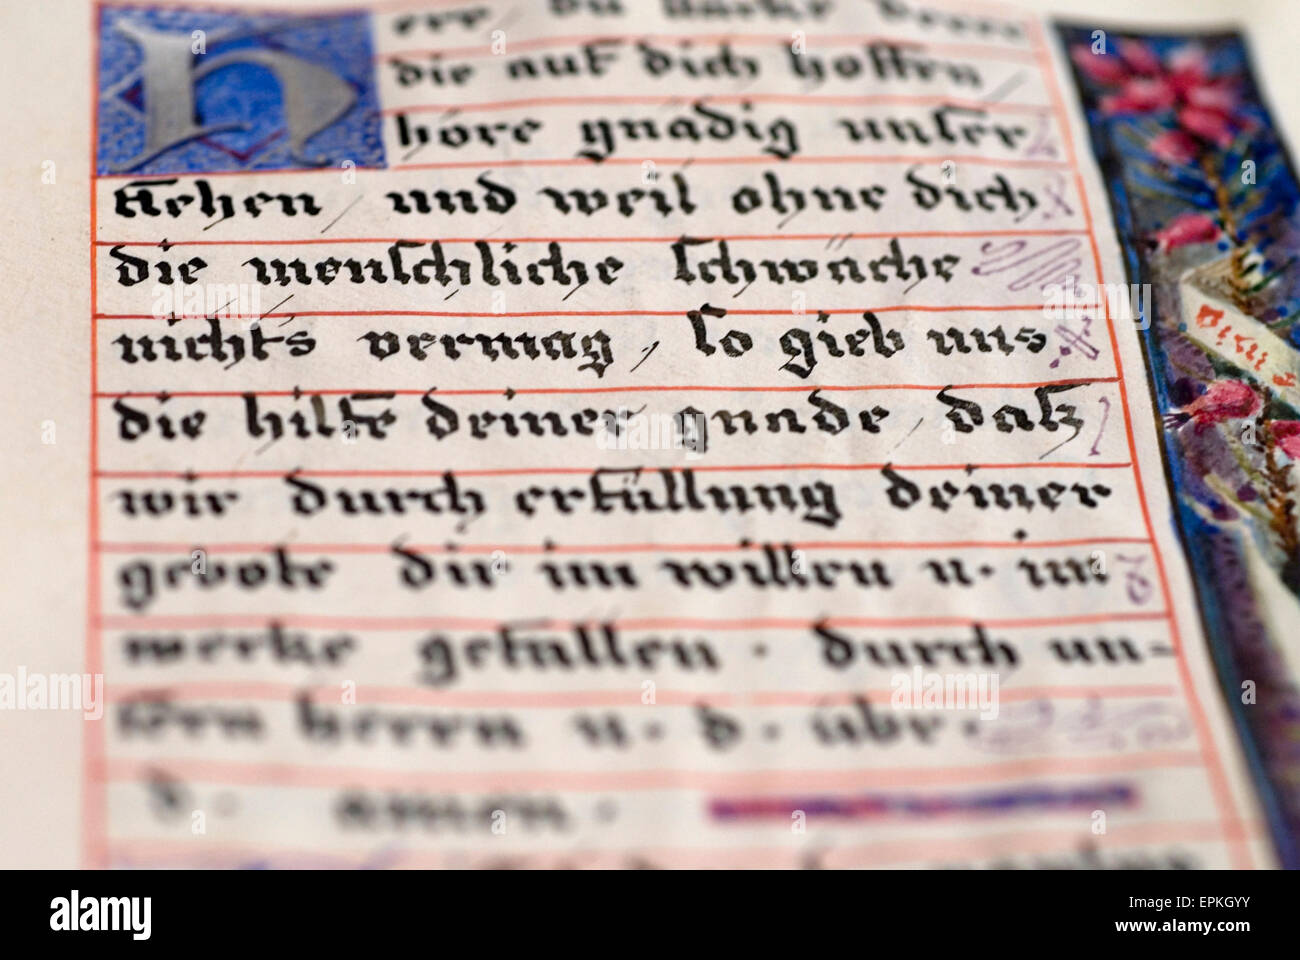 Herr, du stärke derer
die auf dich hoffen
höre gnädig unser
flehen, und weil ohne dich
die menschliche schwäche
nichts vermag, so gieb uns
die hilfe deiner gnade, daß
wir durch erfüllung deiner
gebote dir im willen u. im
werke gefallen. durch un-
sern herrn u. d. übr.
d. amen.
alamy
Image ID: EPKGYY
www.alamy.com